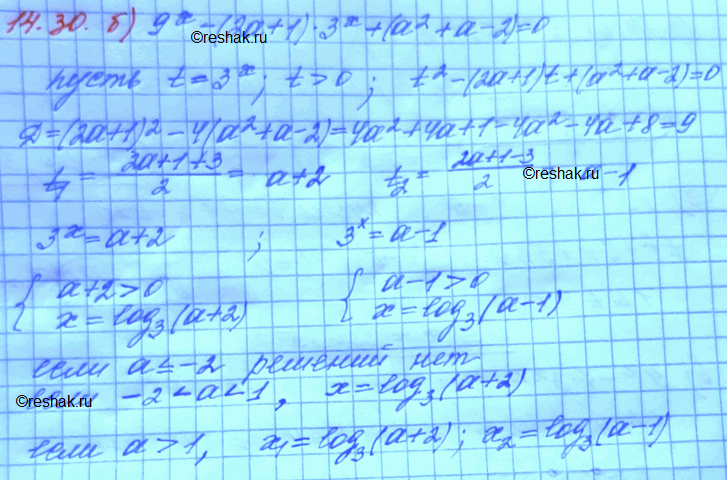 14.30. б) 9^x - (2a+1)·3^x + (a²+a-2)=0
©reshak.ru
пусть t=3^x; t>0; t²-(2a+1)t+(a²+a-2)=0
Д=(2a+1)²-4(a²+a-2)=4a²+4a+1-4a²-4a+8=9
t₁ = (2a+1+3)/2 = a+2 t₂ = (2a+1-3)/2 a-1
©reshak.ru
3^x=a+2 ; 3^x=a-1
{ a+2>0 { a-1>0
x=log₃(a+2) x=log₃(a-1)
если a≤-2 решений нет
если -2<a<1, x=log₃(a+2)
©reshak.ru
если a>1, x₁=log₃(a+2); x₂=log₃(a-1)